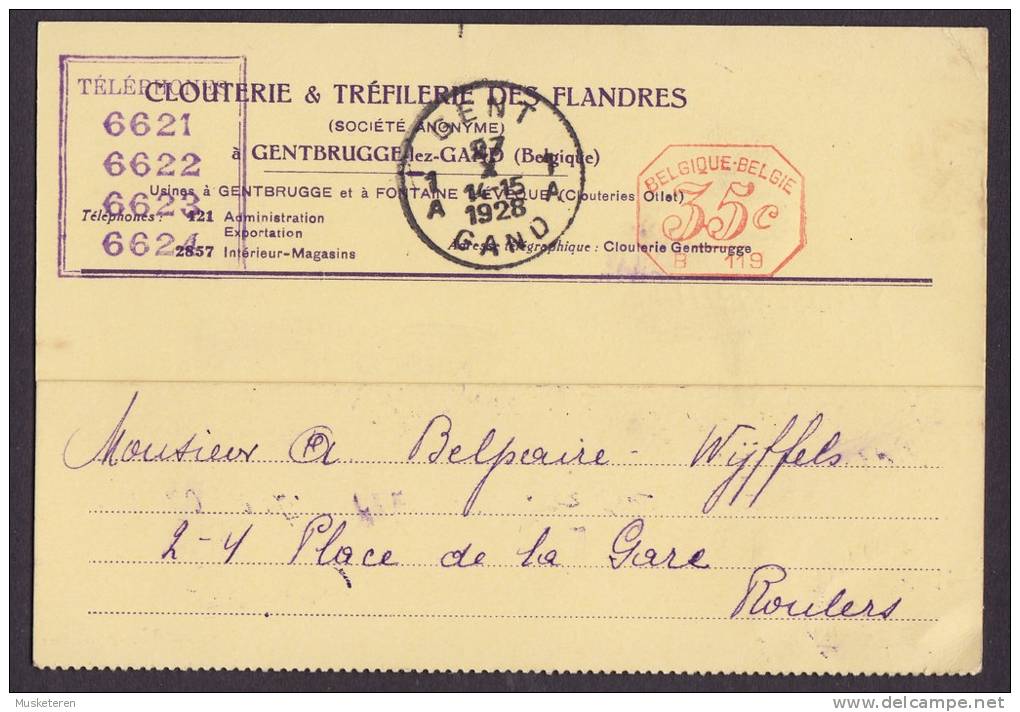 TÉLÉPHONES
6621
6622
6623
6624
CLOUTERIE & TRÉFILERIE DES FLANDRES
(SOCIÉTÉ ANONYME)
à GENTBRUGGE-lez-GAND (Belgique)
Usines à GENTBRUGGE et à FONTAINE L'ÉVÊQUE (Clouteries Otlet)
Téléphones : 121 Administration
Exportation
2857 Intérieur-Magasins
Adresse télégraphique : Clouterie Gentbrugge
GENT
X
1 A 14-15 1 A
1928
GAND
BELGIQUE-BELGIE
35c
B 119
Monsieur A Belpaire - Wijffels
2-4 Place de la Gare
Roulers
Musketeren
delcampe.net